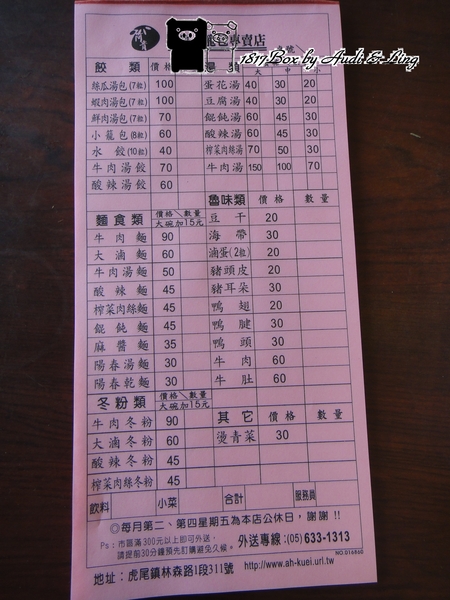 包專賣店
1817Box by Audi & Ling
餃類 價格 湯類 大 中 小
絲瓜湯包(7粒) 100 蛋花湯 40 30 20
蝦肉湯包(7粒) 100 豆腐湯 40 30 20
鮮肉湯包(7粒) 70 餛飩湯 60 45 30
小籠包(8粒) 60 酸辣湯 60 45 30
水餃(10粒) 40 榨菜肉絲湯 70 50 30
牛肉湯餃 70 牛肉湯 150 100 70
酸辣湯餃 60
魯味類 價格 數量
麵食類 價格 數量 大碗加15元 豆干 20
牛肉麵 90 海帶 30
大滷麵 60 滷蛋(2粒) 20
牛肉湯麵 50 豬頭皮 20
酸辣麵 45 豬耳朵 30
榨菜肉絲麵 45 鴨翅 20
餛飩麵 45 鴨腱 30
麻醬麵 35 鴨頭 30
陽春湯麵 30 牛肉 60
陽春乾麵 30 牛肚 60
冬粉類 價格 數量 大碗加15元 其它 價格 數量
牛肉冬粉 90 燙青菜 30
大滷冬粉 60
酸辣冬粉 45
榨菜肉絲冬粉 45
飲料 小菜 合計 服務員
◎每月第二、第四星期五為本店公休日,謝謝!!
Ps:市區滿300元以上即可外送,
請提前30分鐘預先訂購避免久候。 外送專線:(05)633-1313
NO.D16860
地址:虎尾鎮林森路1段311號 http://www.ah-kuei.url.tw